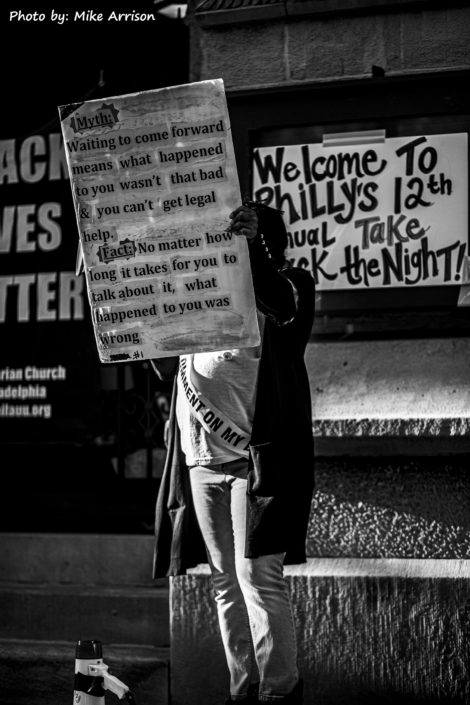 Photo by: Mike Arrison
Myth:
Waiting to come forward
means what happened
to you wasn't that bad
& you can't get legal
help.
Fact: No matter how
long it takes for you to
talk about it, what
happened to you was
wrong
#1
Welcome To
Philly's 12th
nual Take
ck the Night!
ACK
VES
TTER
rian Church
adelphia
hilauu.org
MMENT ON MY